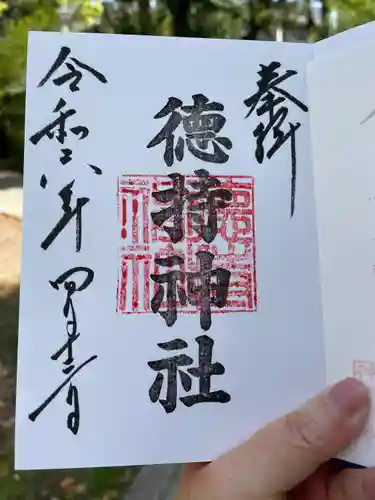 奉拝
德持神社
令和六年四月十二日